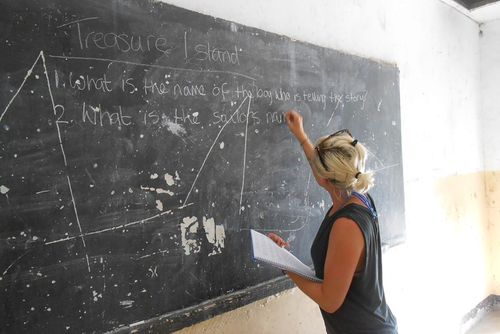 Treasure Island
1. What is the name of the boy who is telling the story?
2. What is the sailor's nam